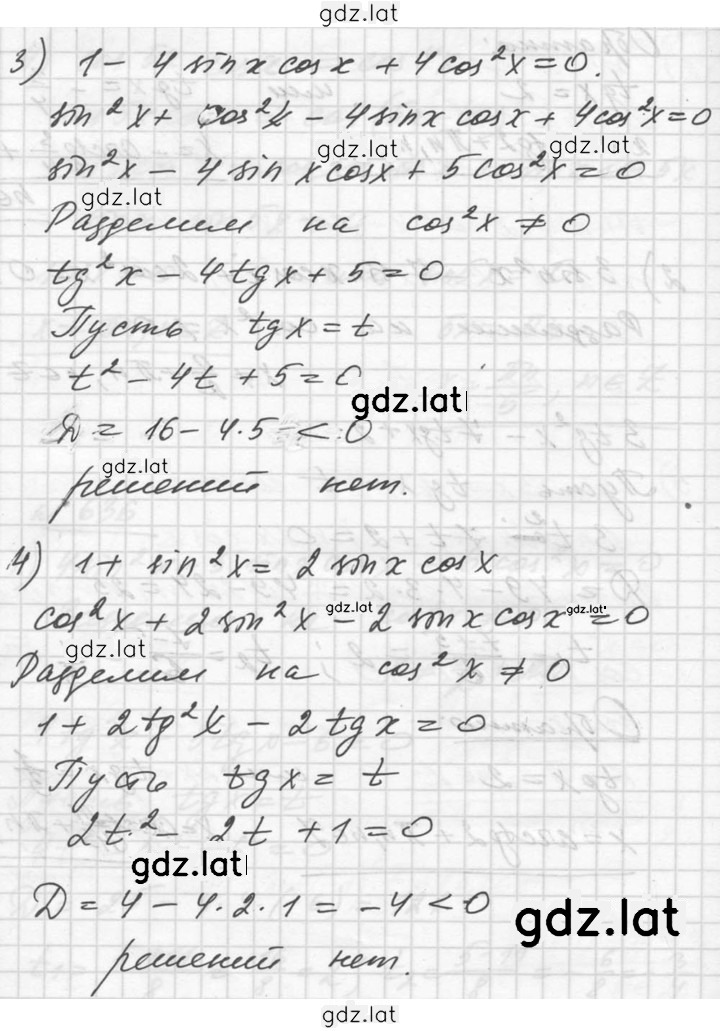 gdz.lat
3) 1 - 4 sin x cos x + 4 cos²x = 0.
sin²x + cos²x - 4 sin x cos x + 4 cos²x = 0
gdz.lat gdz.lat
sin²x - 4 sin x cos x + 5 cos²x = 0
gdz.lat
Разделим на cos²x ≠ 0
tg²x - 4 tg x + 5 = 0
Пусть tg x = t
t² - 4t + 5 = 0
gdz.lat
D = 16 - 4·5 < 0
gdz.lat
решений нет.
4) 1 + sin²x = 2 sin x cos x
gdz.lat gdz.lat
cos²x + 2 sin²x - 2 sin x cos x = 0
gdz.lat
Разделим на cos²x ≠ 0
1 + 2 tg²x - 2 tg x = 0
Пусть tg x = t
2t² - 2t + 1 = 0
gdz.lat
D = 4 - 4·2·1 = -4 < 0
gdz.lat
решений нет.
gdz.lat